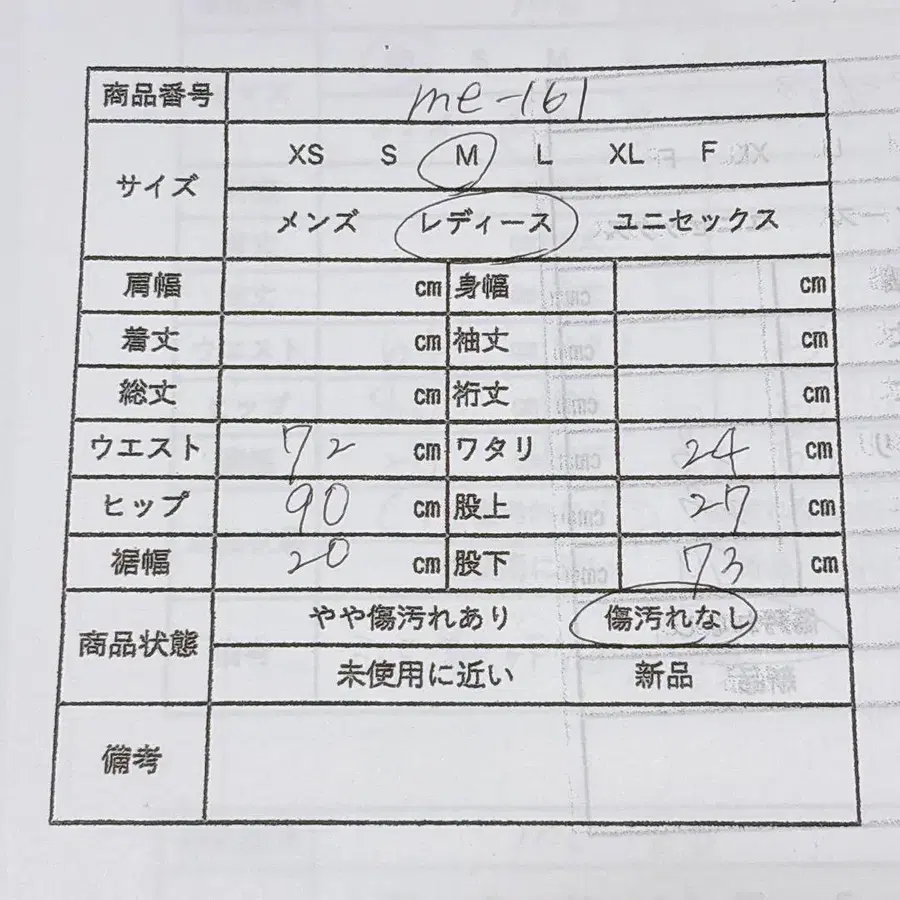 商品番号 me-161
サイズ XS S M L XL F
メンズ レディース ユニセックス
肩幅 cm 身幅 cm
着丈 cm 袖丈 cm
総丈 cm 裄丈 cm
ウエスト 72 cm ワタリ 24 cm
ヒップ 90 cm 股上 27 cm
裾幅 20 cm 股下 73 cm
商品状態 やや傷汚れあり 傷汚れなし
未使用に近い 新品
備考